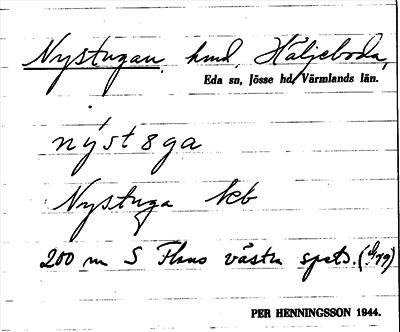 Nystugan, hmd, Häljeboda,
Eda sn, Jösse hd, Värmlands län.
nýst8ga
Nystuga kb
200 m S Flens västra spets.
PER HENNINGSSON 1944.